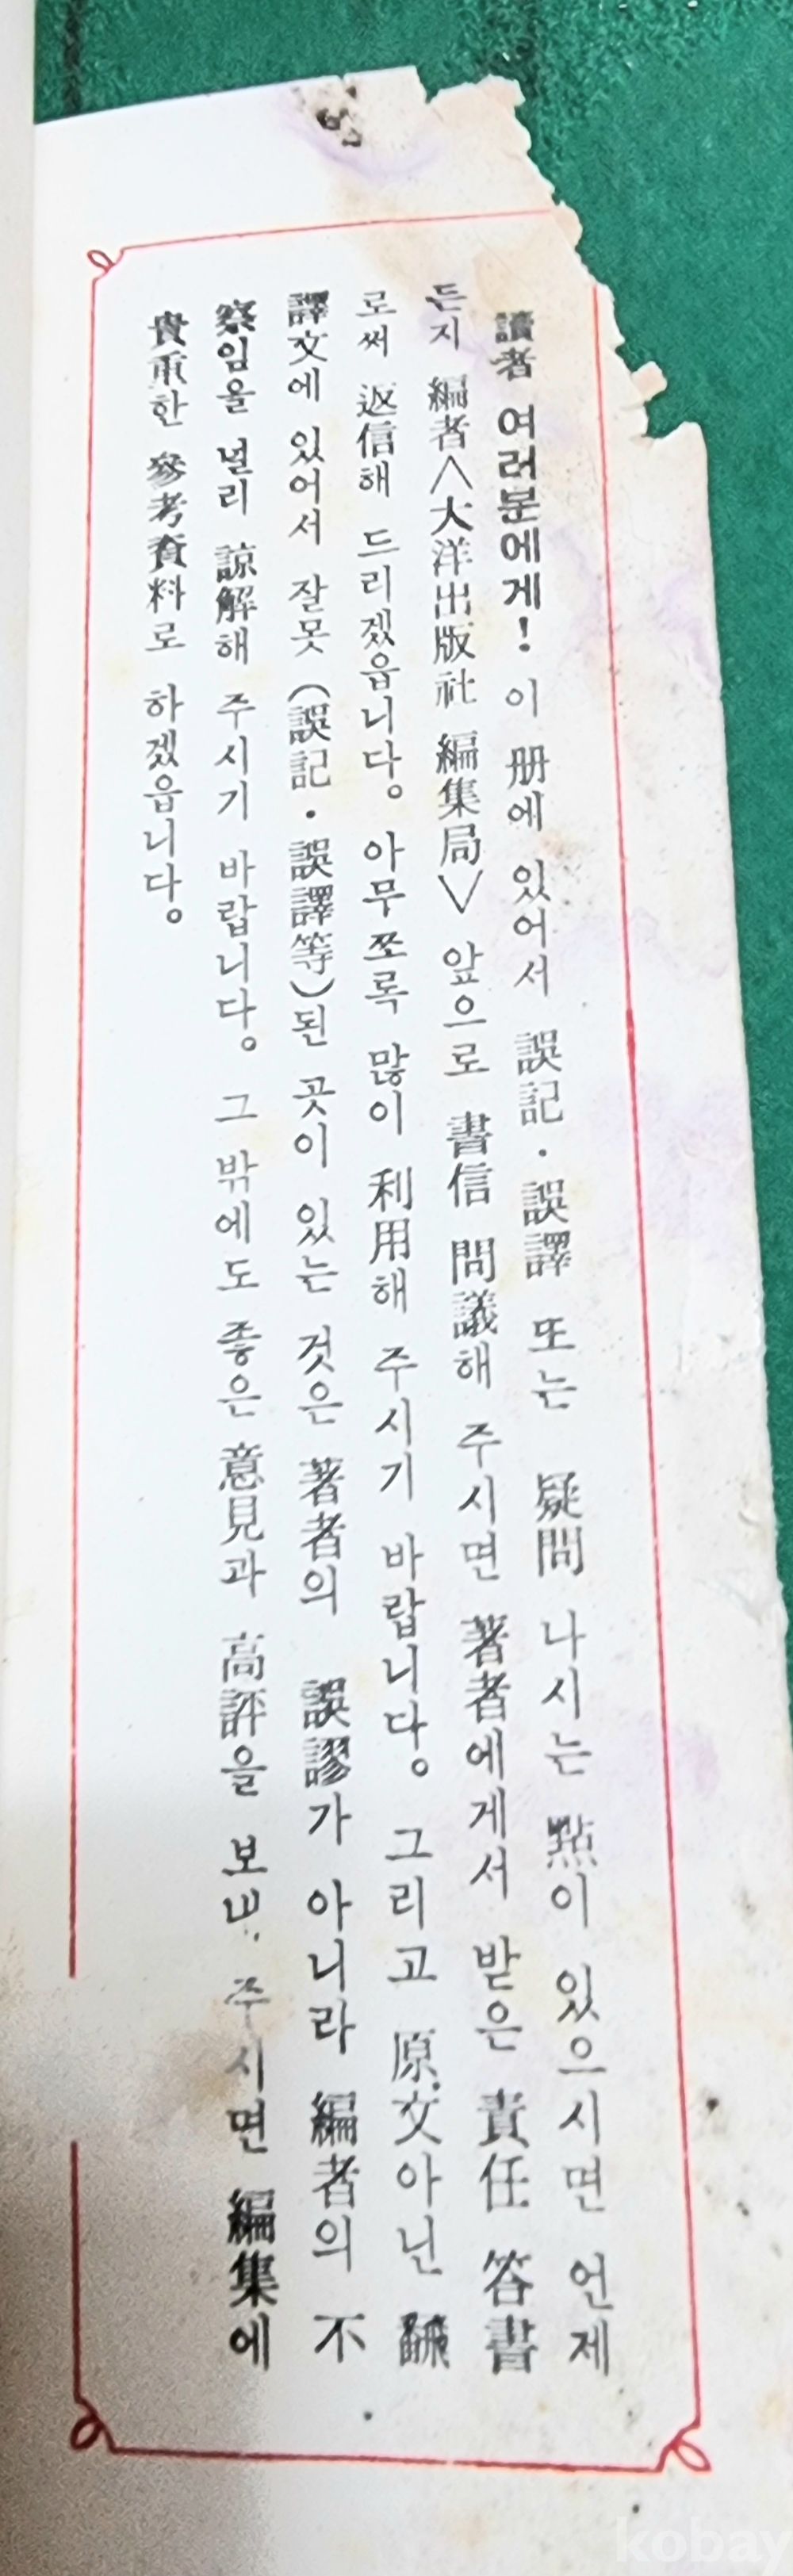 讀者 여러분에게! 이 册에 있어서 誤記·誤譯 또는 疑問 나시는 點이 있으시면 언제
든지 編者<大洋出版社 編集局> 앞으로 書信 問議해 주시면 著者에게서 받은 責任 答書
로써 返信해 드리겠읍니다。 아무쪼록 많이 利用해 주시기 바랍니다。 그리고 原文아닌 飜
譯文에 있어서 잘못(誤記·誤譯等)된 곳이 있는 것은 著者의 誤謬가 아니라 編者의 不
察임을 널리 諒解해 주시기 바랍니다。 그 밖에도 좋은 意見과 高評을 보내 주시면 編集에
貴重한 參考資料로 하겠읍니다。
kobay